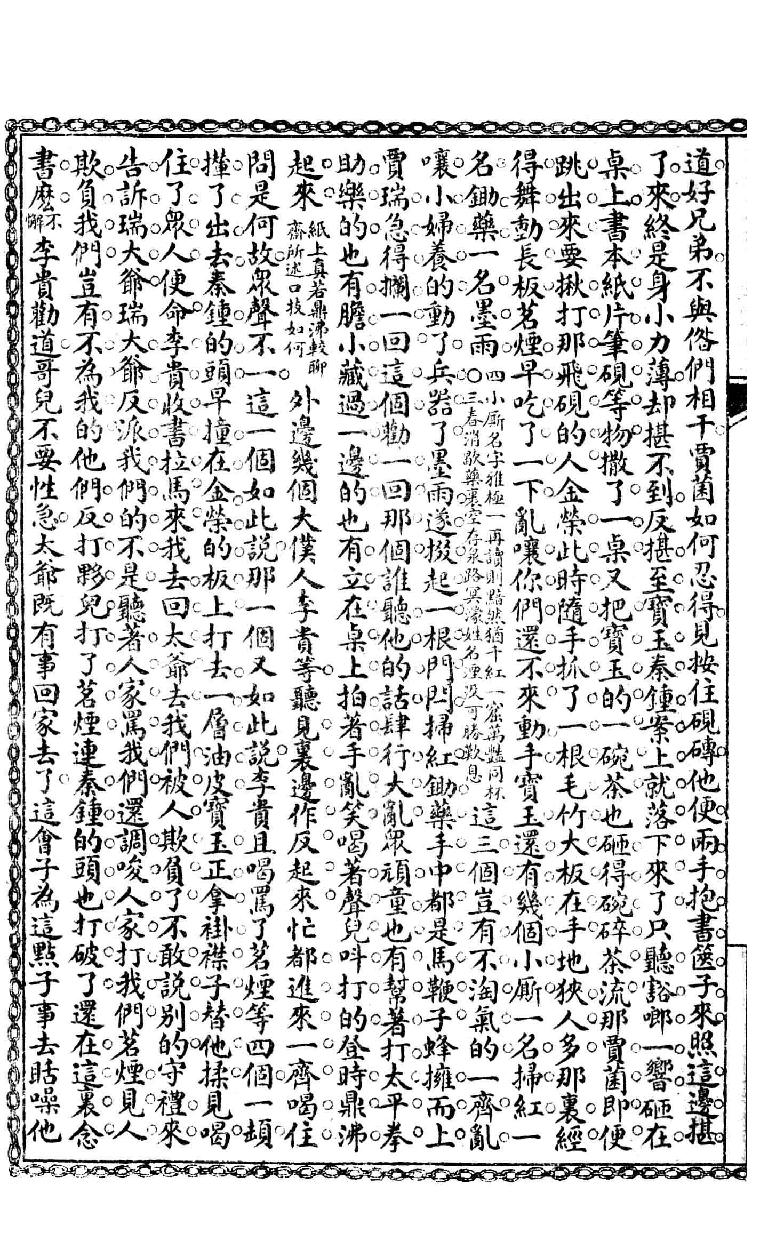 道好兄弟不與俗們相干賈菌如何忍得見按住硯磚他便兩手抱書篋子來照這邊揕
了來終是身小力薄却揕不到反揕至寶玉秦鍾案上就落下來了只聽豁啷一響砸在
桌上書本紙片筆硯等物撒了一桌又把寶玉的一碗茶也砸得碗碎茶流那賈菌即便
跳出來要揪打那飛硯的人金榮此時隨手抓了一根毛竹大板在手地狹人多那裏經
得舞動長板茗煙早吃了一下亂嚷你們還不來動手寶玉還有幾個小厮一名掃紅一
名鋤藥一名墨雨四小厮名字雅極一再讀則黯然猶千紅一窟萬豔同杯〇三春消歇藥裏空存泉路冥濛姓名湮沒可勝歎息這三個豈有不淘氣的一齊亂
嚷小婦養的動了兵器了墨雨遂掇起一根門閂掃紅鋤藥手中都是馬鞭子蜂擁而上
賈瑞急得攔一回這個勸一回那個誰聽他的話肆行大亂眾頑童也有幫著打太平拳
助樂的也有膽小藏過一邊的也有立在桌上拍著手亂笑喝著聲兒呌打的登時鼎沸
起來紙上真若鼎沸較聊齋所述口技如何外邊幾個大僕人李貴等聽見裏邊作反起來忙都進來一齊喝住
問是何故眾聲不一這一個如此說那一個又如此說李貴且喝罵了茗煙等四個一頓
攆了出去秦鍾的頭早撞在金榮的板上打去一層油皮寶玉正拿褂襟子替他揉見喝
住了眾人便命李貴收書拉馬來我去回太爺去我們被人欺負了不敢說別的守禮來
告訴瑞大爺瑞大爺反派我們的不是聽著人家罵我們還調唆人家打我們茗煙見人
欺負我們豈有不為我的他們反打夥兒打了茗煙連秦鍾的頭也打破了還在這裏念
書麽不懈李貴勸道哥兒不要性急太爺既有事回家去了這會子為這點子事去聒噪他